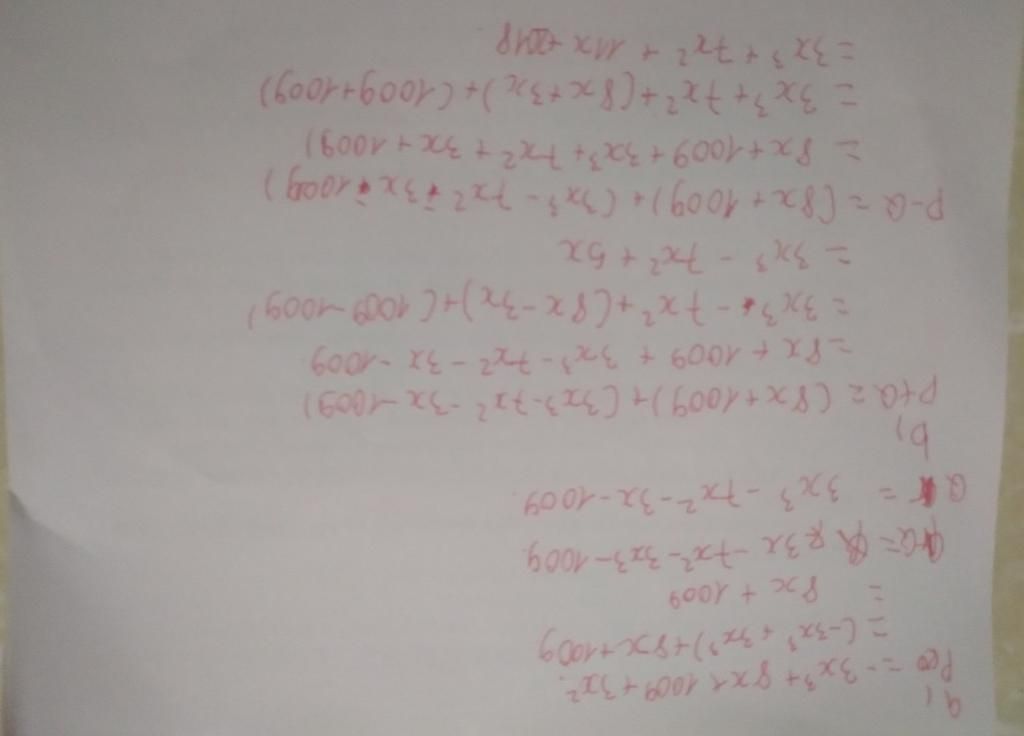 a)
P(x) = -3x³ + 8x + 1009 + 3x²
= (-3x³ + 3x³) + 8x + 1009
= 8x + 1009
Q = 3x - 7x² - 3x³ - 1009
Q = 3x³ - 7x² - 3x - 1009
b)
P+Q = (8x + 1009) + (3x³ - 7x² - 3x - 1009)
= 8x + 1009 + 3x³ - 7x² - 3x - 1009
= 3x³ - 7x² + (8x - 3x) + (1009 - 1009)
= 3x³ - 7x² + 5x
P-Q = (8x + 1009) + (3x³ - 7x² - 3x - 1009)
= 8x + 1009 + 3x³ + 7x² + 3x + 1009)
= 3x³ + 7x² + (8x + 3x) + (1009 + 1009)
= 3x³ + 7x² + 11x + 2018